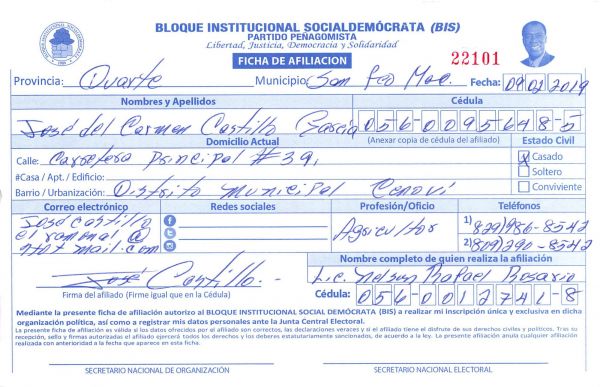 BLOQUE INSTITUCIONAL SOCIALDEMÓCRATA (BIS)
PARTIDO PEÑAGOMISTA
Libertad, Justicia, Democracia y Solidaridad
FICHA DE AFILIACION
22101
Provincia: Duarte Municipio: San Fco Mac. Fecha: 09 01 2019
Nombres y Apellidos Cédula
José del Carmen Castillo García 056-0095648-5
Domicilio Actual (Anexar copia de cédula del afiliado) Estado Civil
Calle: Carretera Principal #39, X Casado
#Casa / Apt. / Edificio: Soltero
Barrio / Urbanización: Distrito Municipal Cenoví Conviviente
Correo electrónico Redes sociales Profesión/Oficio Teléfonos
José castillo
el ramonal@
hot mail.com
Agricultor
1) (829)986-8542
2) (809)290-8542
Nombre completo de quien realiza la afiliación
José Castillo Lic. Nelson Rafael Rosario
Firma del afiliado (Firme igual que en la Cédula) Cédula: 056-0012741-8
Mediante la presente ficha de afiliación autorizo al BLOQUE INSTITUCIONAL SOCIALDEMÓCRATA (BIS) a realizar mi inscripción única y exclusiva en dicha
organización política, así como a registrar mis datos personales ante la Junta Central Electoral.
La presente ficha de afiliación es válida si los datos ofrecidos por el afiliado son correctos, las declaraciones veraces y si el afiliado tiene el disfrute de sus derechos civiles y políticos. Tras su
recepción, sello y firmas autorizadas el afiliado ejercerá todos los derechos y los deberes estatutariamente sancionados, de acuerdo a la ley. La presente afiliación anula cualquier afiliación
realizada con anterioridad a la fecha que aparece en esta ficha.
SECRETARIO NACIONAL DE ORGANIZACIÓN SECRETARIO NACIONAL ELECTORAL